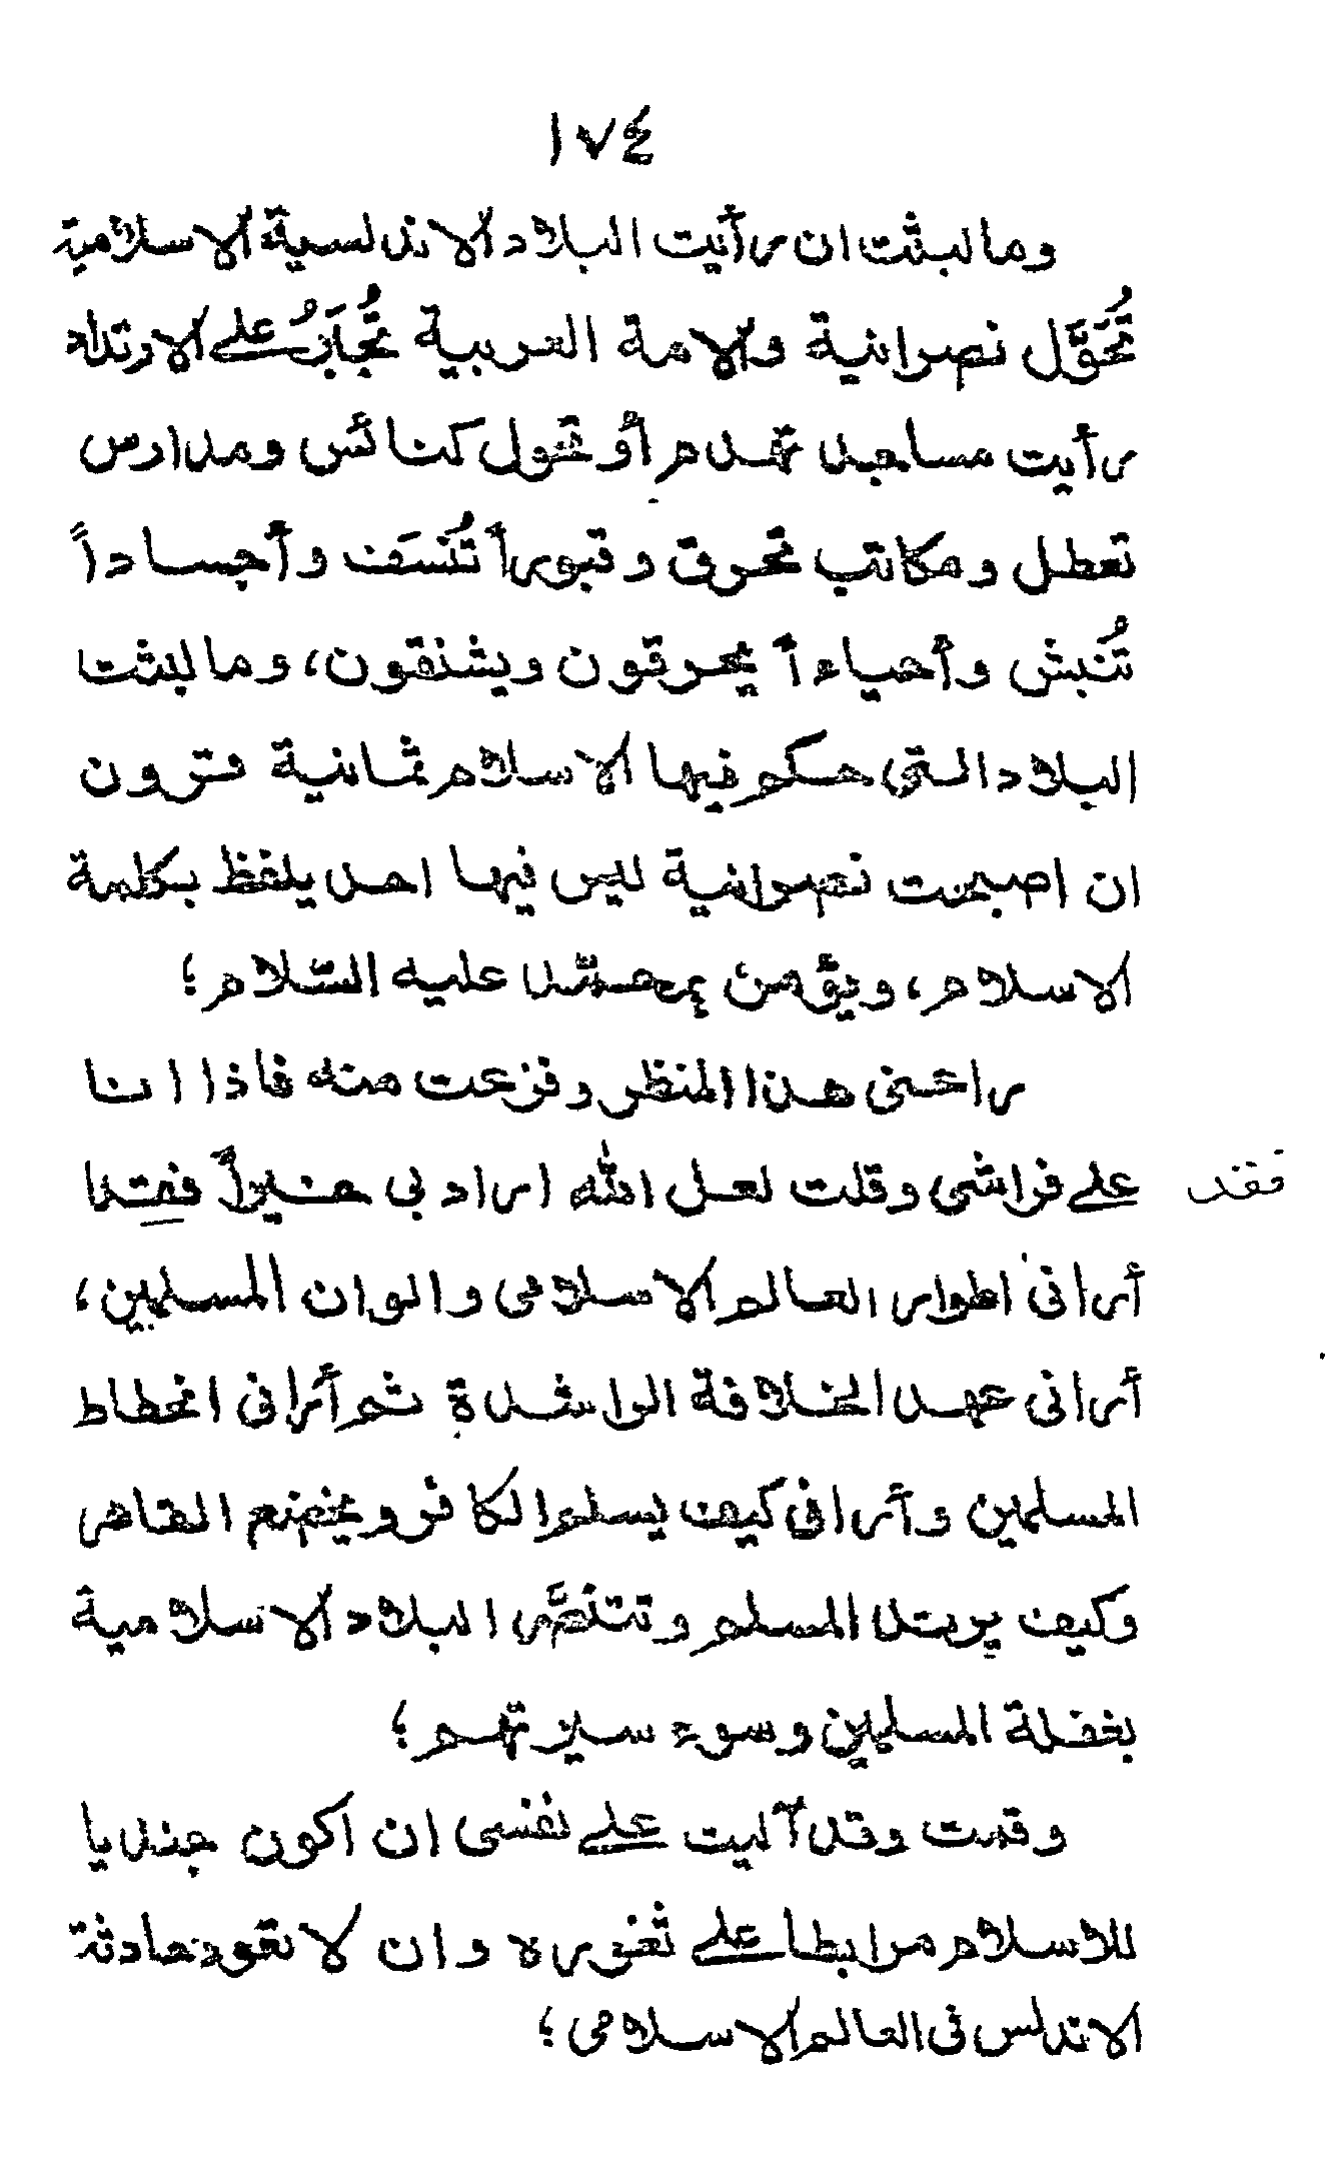 ١٧٤
وما لبثت ان رأيت البلاد الاندلسية الاسلامية
تُحَوَّل نصرانية والامة العربية تُجبَرُ علے الارتداد
رأيت مساجد تهدم أو تحول كنائس ومدارس
تعطل ومكاتب تحرق وقبوراً تُنسَف وأجساداً
تُنبش وأحياءاً يحرقون ويشنقون، وما لبثت
البلاد التي حكم فيها الاسلام ثمانية قرون
ان اصبحت نصرانية ليس فيها احد يلفظ بكلمة
الاسلام، ويؤمن بمحمّد عليه السّلام؛
راعنى هذا المنظر وفزعت منه فاذا انا
علے فراشى وقلت لعل الله اراد بى خيراً فيما
فقد
أرانى اطوار العالم الاسلامى والوان المسلمين،
أرانى عهد الخلافة الراشدة ثم أرانى انحطاط
المسلمين وأرانى كيف يسلم الكافر ويخضع القاهر
وكيف يرتد المسلم وتتنصّر البلاد الاسلامية
بغفلة المسلمين وسوء سيرتهم؛
وقمت وقد آليت علے نفسى ان اكون جنديا
للاسلام مرابطا علے ثغوره وان لا تعود حادثة
الاندلس فى العالم الاسلامى؛